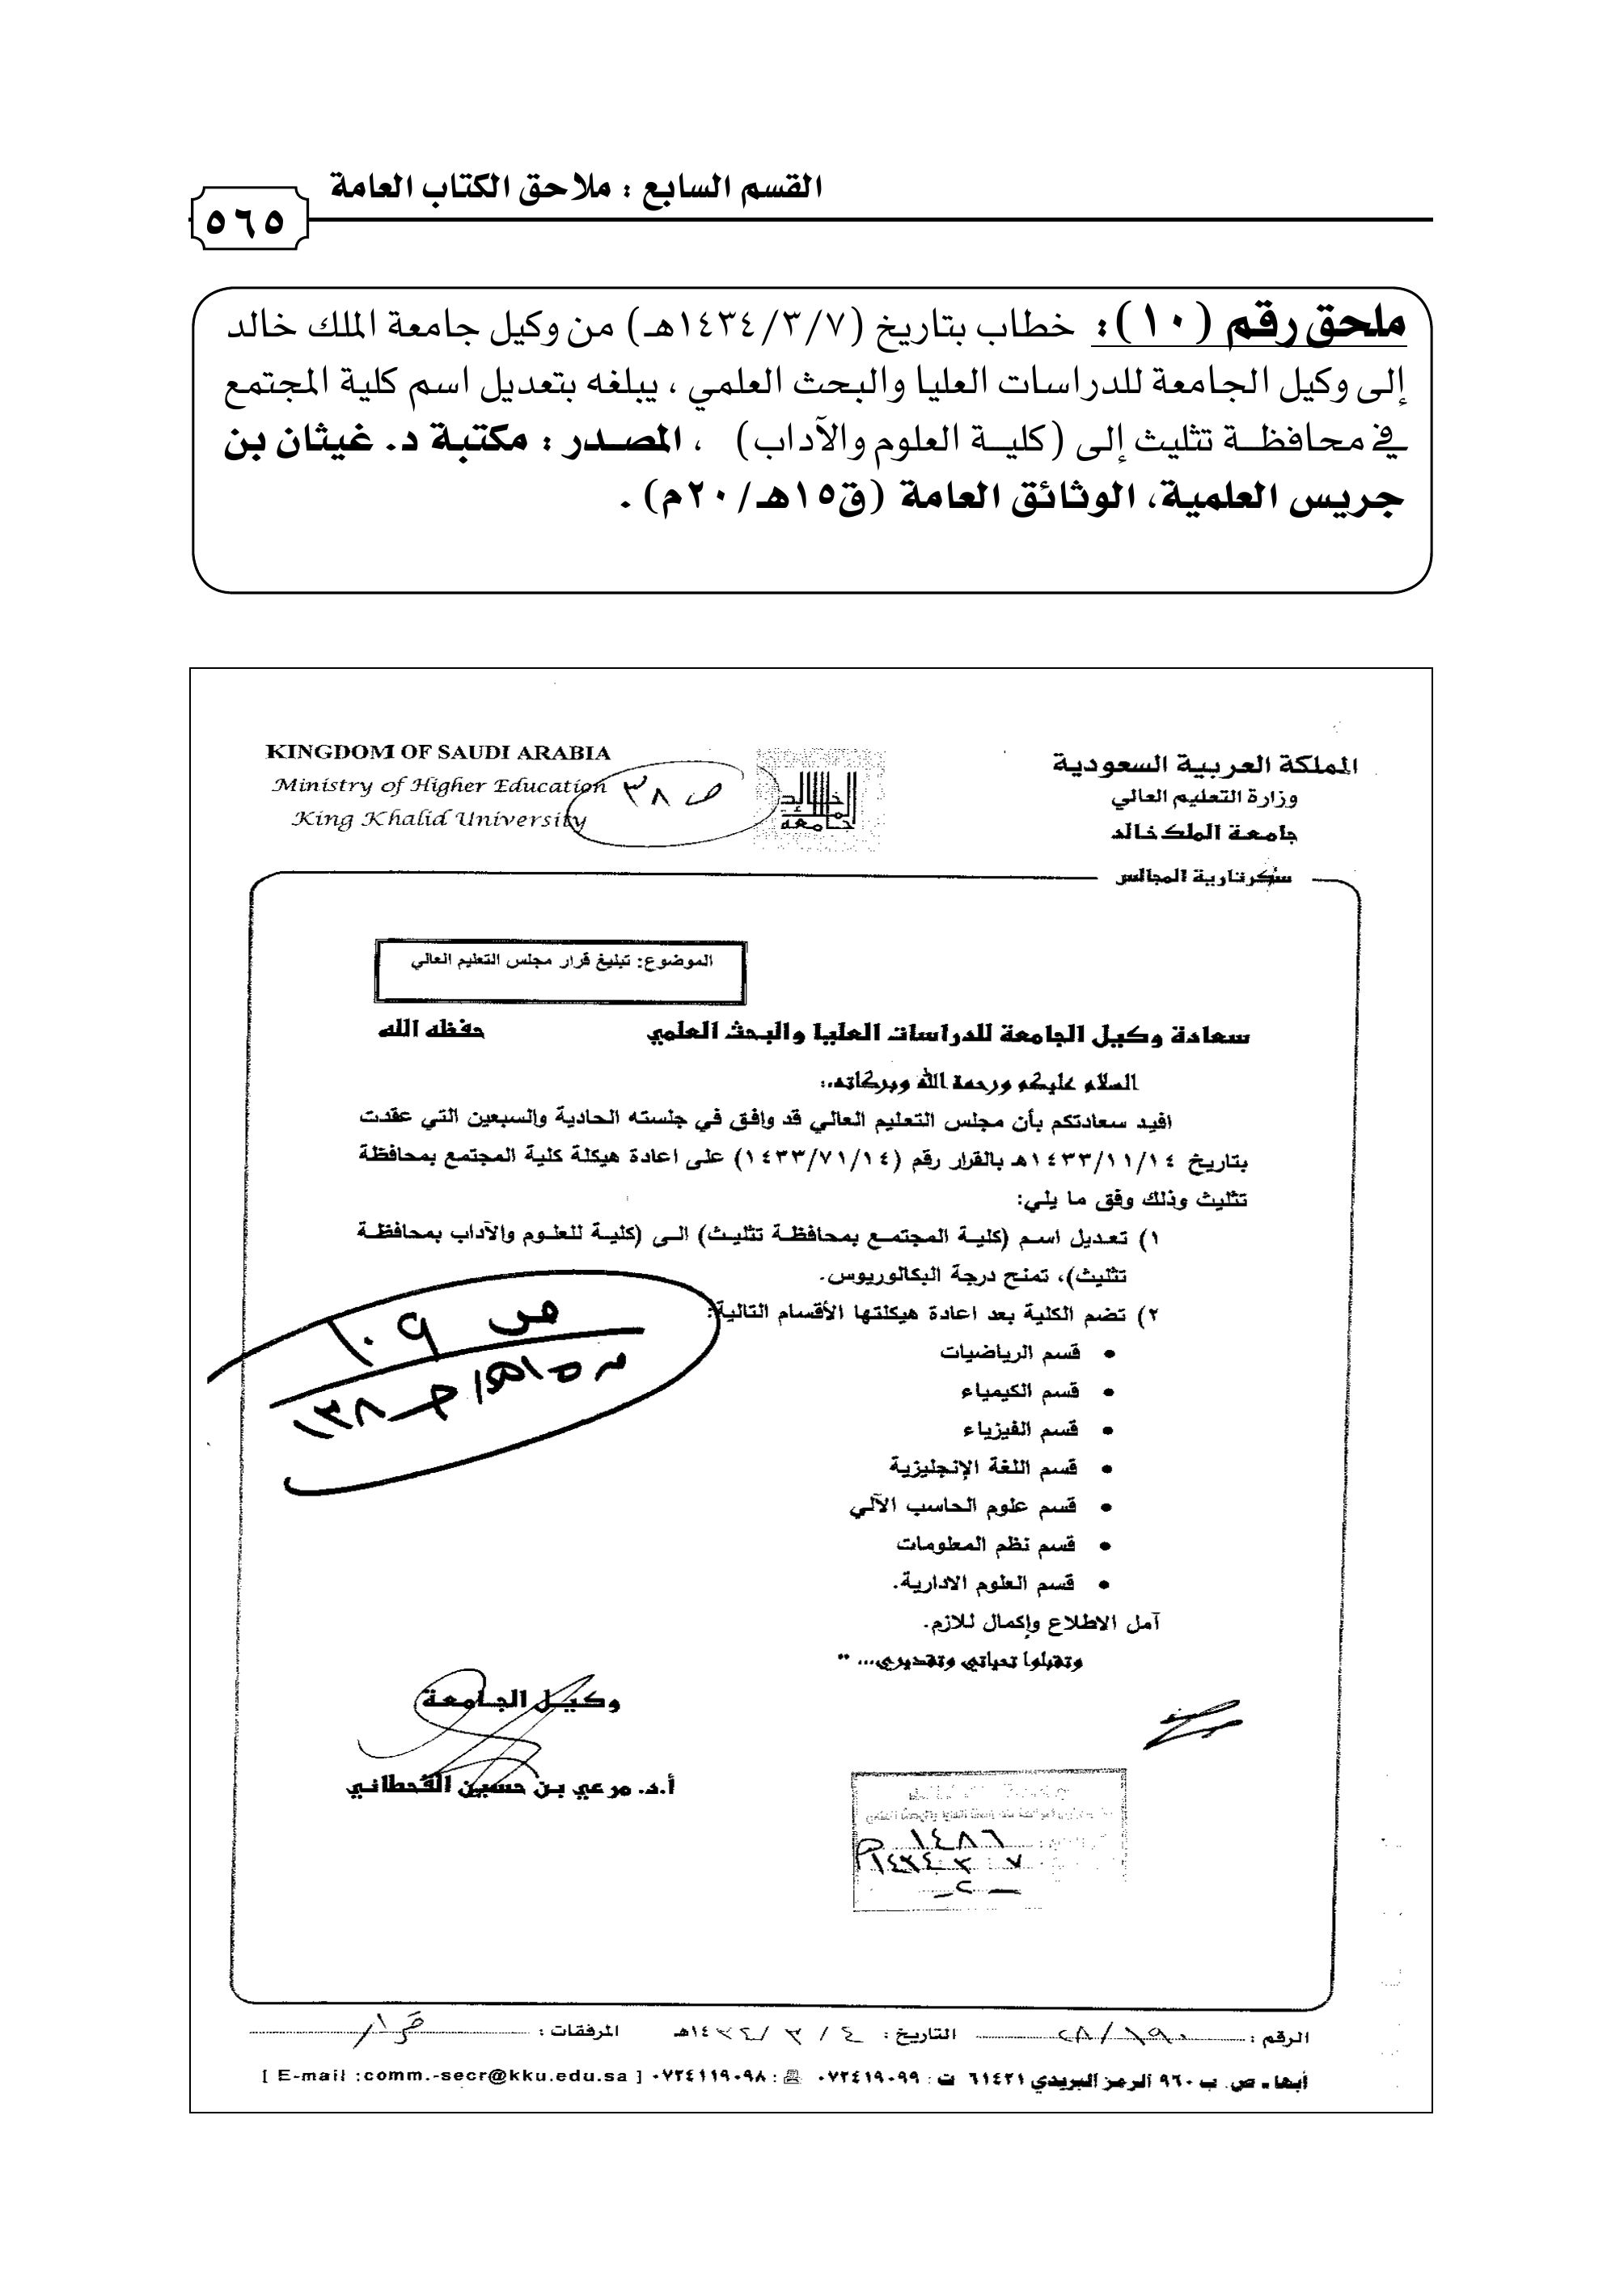 القسم السابع : ملاحق الكتاب العامة
٥٦٥
ملحق رقم (١٠): خطاب بتاريخ (١٤٣٤/٣/٧هـ) من وكيل جامعة الملك خالد
إلى وكيل الجامعة للدراسات العليا والبحث العلمي ، يبلغه بتعديل اسم كلية المجتمع
في محافظة تثليث إلى (كلية العلوم والآداب) ، المصدر : مكتبة د. غيثان بن
جريس العلمية، الوثائق العامة (ق١٥هـ/٢٠م) .
المملكة العربية السعودية
وزارة التعليم العالي
جامعة الملك خالد
سكرتارية المجالس
جامعة الملك خالد
KINGDOM OF SAUDI ARABIA
Ministry of Higher Education
King Khalid University
ص ٣٨
الموضوع: تبليغ قرار مجلس التعليم العالي
سعادة وكيل الجامعة للدراسات العليا والبحث العلمي حفظه الله
السلام عليكم ورحمة الله وبركاته،:
افيد سعادتكم بأن مجلس التعليم العالي قد وافق في جلسته الحادية والسبعين التي عقدت
بتاريخ ١٤٣٣/١١/١٤هـ بالقرار رقم (١٤٣٣/٧١/١٤) على اعادة هيكلة كلية المجتمع بمحافظة
تثليث وذلك وفق ما يلي:
١) تعديل اسم (كلية المجتمع بمحافظة تثليث) الى (كلية للعلوم والآداب بمحافظة
تثليث)، تمنح درجة البكالوريوس.
٢) تضم الكلية بعد اعادة هيكلتها الأقسام التالية:
• قسم الرياضيات
• قسم الكيمياء
• قسم الفيزياء
• قسم اللغة الإنجليزية
• قسم علوم الحاسب الآلي
• قسم نظم المعلومات
• قسم العلوم الادارية.
ص ١٠٩
آمل الاطلاع وإكمال للازم.
وتقبلوا تحياتي وتقديري... ،،
وكيل الجامعة
أ.د. مرعي بن حسين القحطاني
١٤٨٦
٧ ٣ ١٤٣٤
الرقم : ٢٨/١٩٠ التاريخ : ٤ / ٣ / ١٤٣٤هـ المرفقات :
أبها - ص. ب ٩٦٠ الرمز البريدي ٦١٤٢١ ت : ٠٧٢٤١٩٠٩٩ : ٠٧٢٤١١٩٠٩٨ [ E-mail :comm.-secr@kku.edu.sa ]